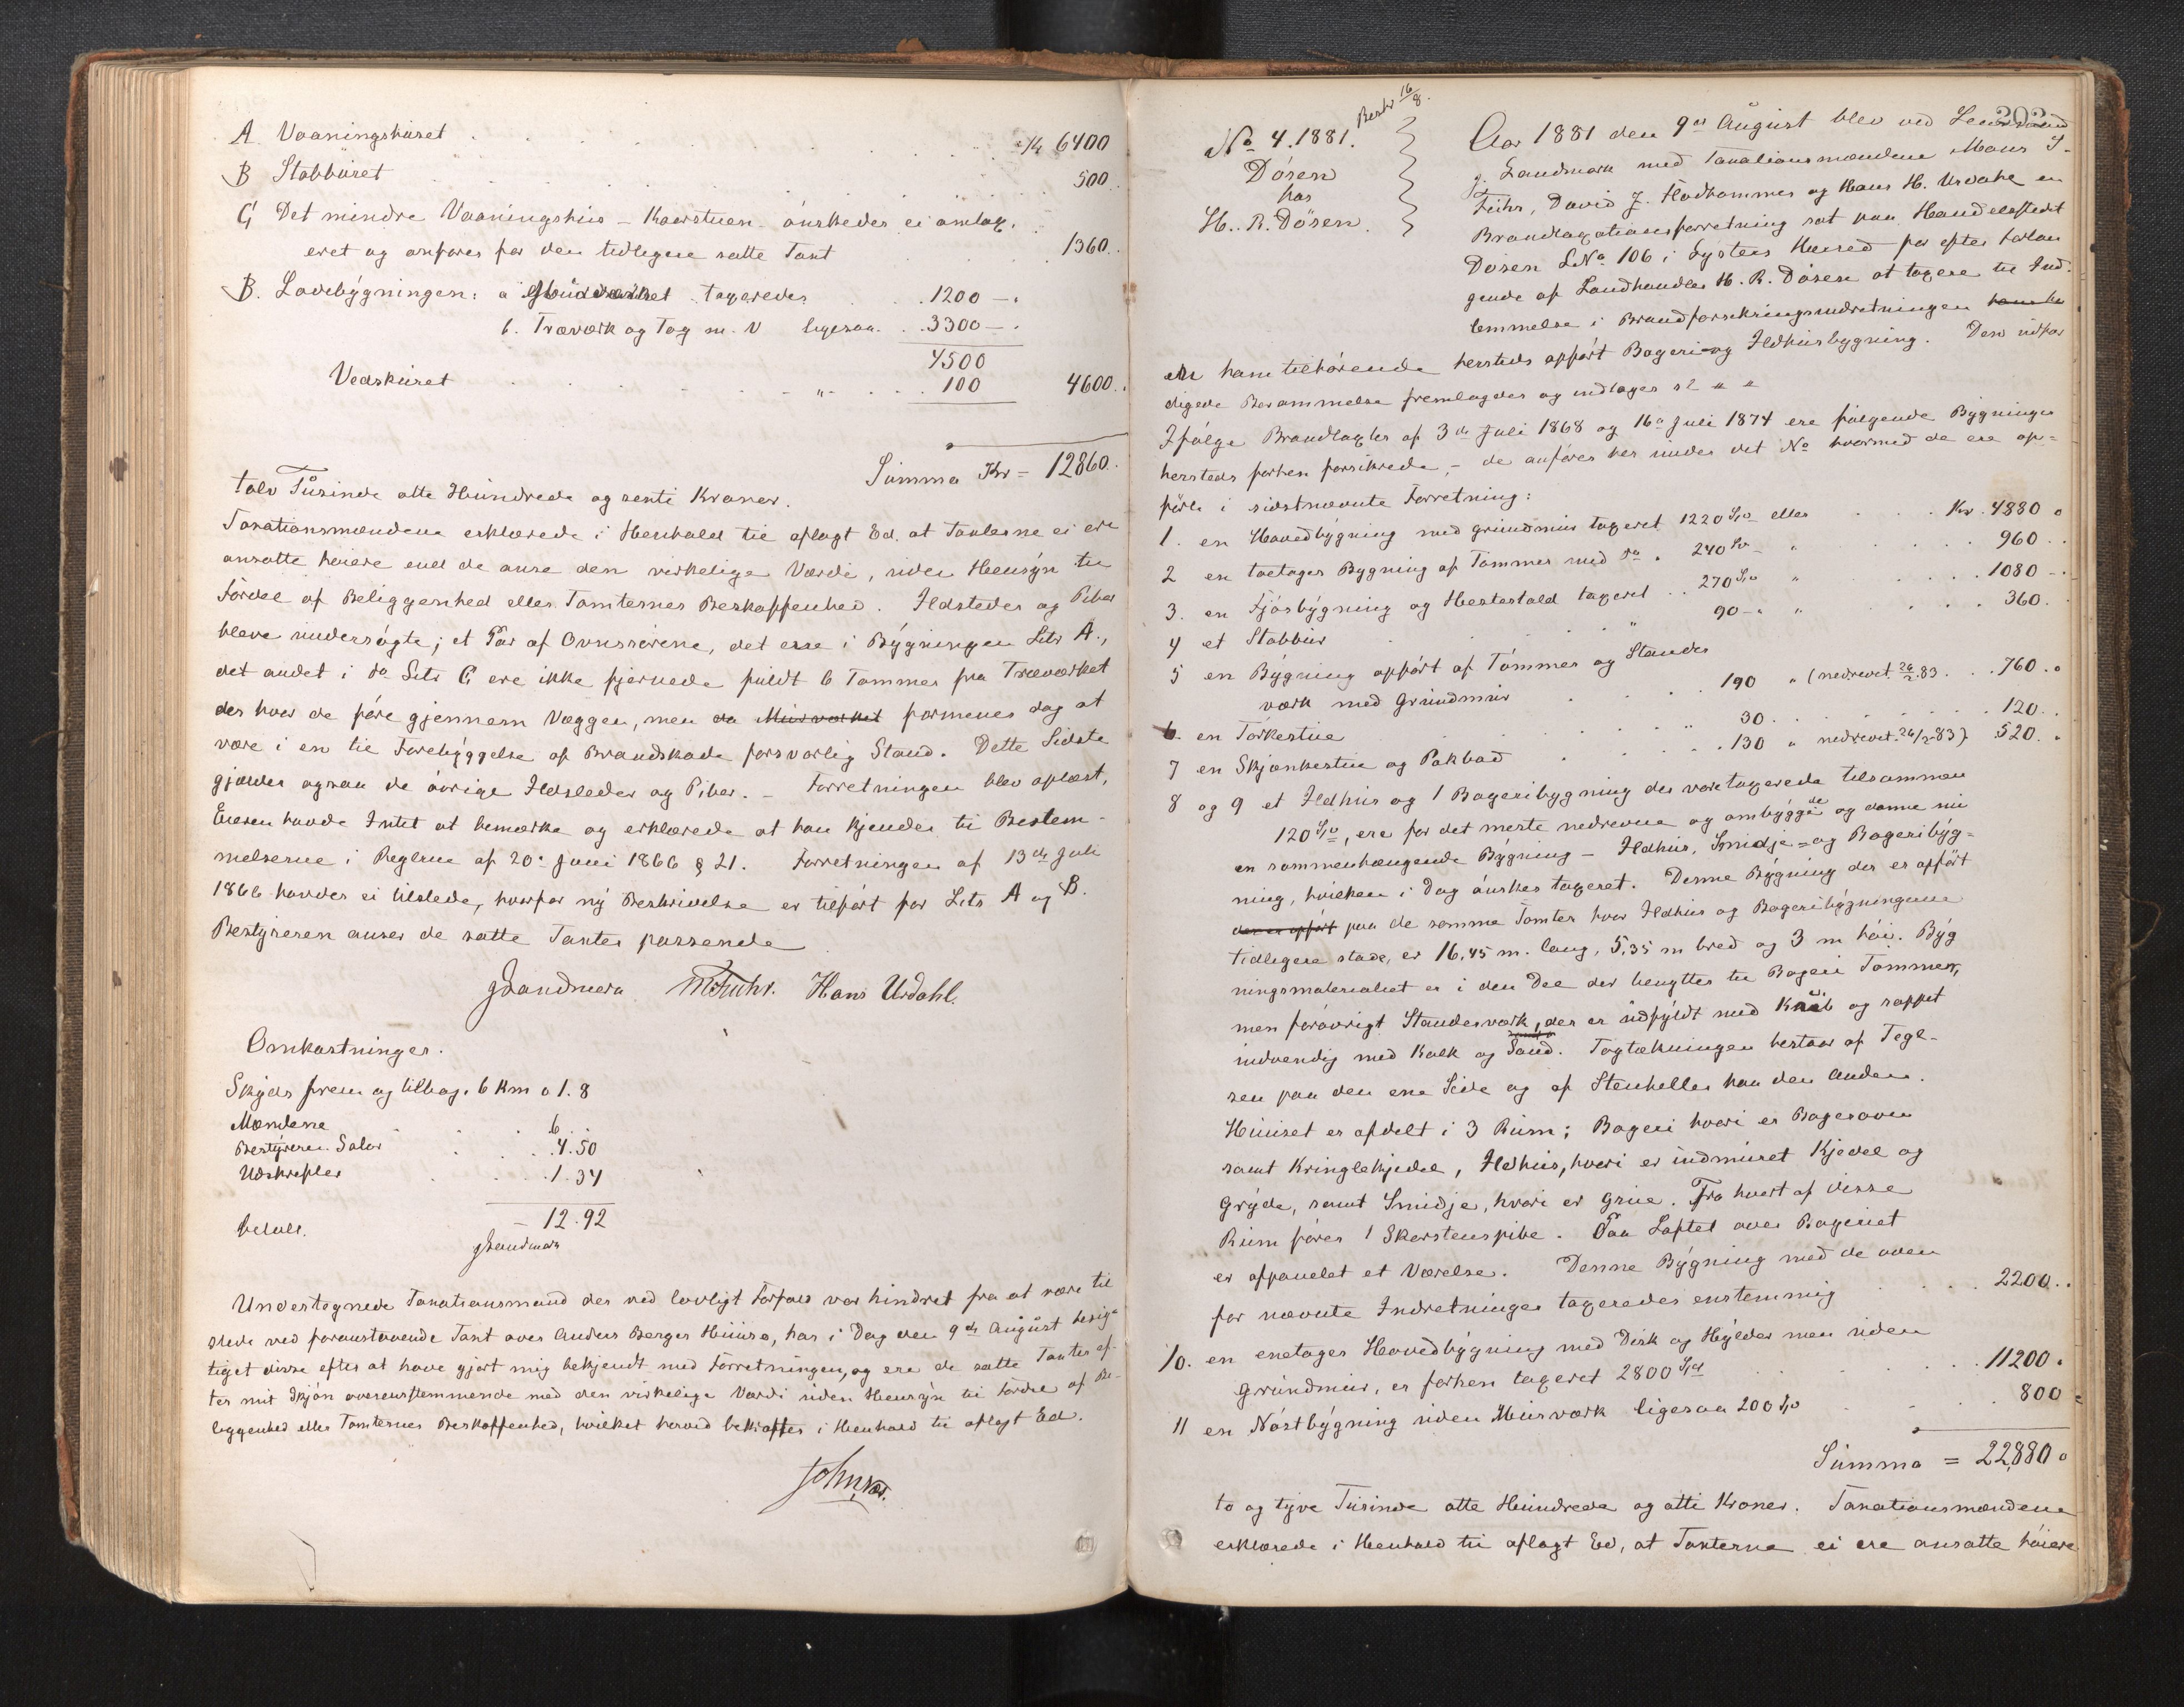 A. Vaaningshuset . . . . . 6400
B Stabburet . . . . . 500.
C Det mindre Vaaningshus - Kaarstuen - ønskedes ei omtax-
eret og anføres for den tidligere satte Taxt . . . 1360.
D. Ladebygningen: a taxeredes . 1200 -.
b. Træværk og Tag m. V ligesaa . . 3300 -.
4500
Vedskuret . . . " . . . 100 4600.
Summa Kr = 12860.
tolv Tusinde otte Hundrede og sexti Kroner.
Taxationsmændene erklærede i Henhold til aflagt Ed. at Taxterne ei ere
ansatte høiere end de anse den virkelige Værdi, uden Hensyn til
Fordel af Beliggenhed eller Tomternes Beskaffenhed. Ildsteder og Piber
bleve undersøgte; et Par af Ovnsrørene, det ene i Bygningen Litr A.,
det andet i do Litr C ere ikke fjernede fuldt 6 Tommer fra Træværket
der hvor de føre gjennem Væggen, men da Murværket formenes dog at
være i en til Forebyggelse af Brandskade forsvarlig Stand. Dette Sidste
gjælder ogsaa de øvrige Ildsteder og Piber. - Forretningen blev oplæst,
Eieren havde Intet at bemærke og erklærede at han kjender til Bestem-
melserne i Reglerne af 20de Juni 1866 § 21. Forretningen af 13de Juli
1866 havdes ei tilstede, hvorfor ny Beskrivelse er tilført for Litr A og B.
Bestyreren anser de satte Taxter passende
JLandmark MFuhr. Hans Urdahl.
Omkostninger.
Skyds frem og tilbag. 6 Km a 1.8
Mændene . . . 6 . .
Bestyreren. Salar . . . 4.50
Udskrifter . . . 1.34
- 12.92
betalt.
JLandmark
Undertegnede Taxationsmand der ved lovligt Forfald var hindret fra at være til
stede ved foranstaaende Taxt over Anders Berges Huuse, har i Dag den 9de August besig-
tiget disse efter at have gjort mig bekjendt med Forretningen, og ere de satte Taxter ef-
ter mit Skjøn overensstemmende med den virkelige Værdi uden Hensyn til Fordel af Be-
liggenhed eller Tomternes Beskaffenhed, hvilket herved bekræftes i Henhold til aflagt Ed.
302
Beskr 16/8.
No 4. 1881.
Døsen
hos
H. R. Døsen.
Aar 1881 den 9de August blev ved Lensmand
J. Landmark med Taxationsmændene Mons S.
Fuhr, David J. Flodhammer og Hans H. Urdahl en
Brandtaxationsforretning sat paa Handelsstedet
Døsen LNo 106 i Lysters Herred for efter Forlan
gende af Landhandler H. R. Døsen at taxere til Ind-
lemmelse i Brandforsikringsindretningen
en ham tilhørende hersteds opført Bageri- og Ildhusbygning. Den udfær
digede Berammelse fremlagdes og indtages sl " "
Ifølge Brandtaxter af 3de Juli 1868 og 16de Juli 1874 ere følgende Bygninger
hersteds forhen forsikrede, - de anføres her under det No hvormed de ere op-
førte i sidstnævnte Forretning:
1. en Hovedbygning med Grundmur taxeret 1220 Spd eller . . . Kr. 4880 .
2 en toetages Bygning af Tømmer med do . 240 Spd - " . . . 960 . .
3. en Fjøsbygning og Hestestald taxeret . . 270 Spd " . . . 1080 - .
4 et Stabbur . . . " 90 - . " . . . 360.
5 en Bygning opført af Tømmer og Stander
værk med Grundmur . . . 190 " (nedrevet 26/2. 83 . . . 760 . .
6. en Tørkestue . . . " 30 . . . 120 . .
7 en Skjænkestue og Pakbod . . . 130 " nedrevet. 26/2 83) 520 . .
8 og 9 et Ildhus og 1 Bageribygning der vare taxerede tilsammen
120 Spd, ere for det meste nedrevne og ombyggede og danne nu
en sammenhængende Bygning - Ildhus, Smidje- og Bageribyg-
ning, hvilken i Dag ønskes taxeret. Denne Bygning der er opført
der er opført paa de samme Tomter hvor Ildhus og Bageribygningerne
tidligere stode, er 16,45 m. lang, 5,35 m bred og 3 m høi. Byg
ningsmaterialiet er i den Del der benyttes til Bageri Tømmer,
men forøvrigt Standerværk, der er udfyldt med og rappet
indvendig med Kalk og Sand. Tagtækningen bestaar af Tegl-
sten paa den ene Side og af Stenheller paa den Anden.
Huuset er afdelt i 3 Rum; Bageri hvori er Bagerovn
samt Kringlekjedel, Ildhus, hvori er indmuret Kjedel og
Gryde, samt Smidje, hvori er Grue. Fra hvert af disse
Rum fører 1 Skorstenspibe. Paa Loftet over Bageriet
er afpanelet et Værelse. Denne Bygning med de oven
for nævnte Indretninger taxeredes enstemmig . . . 2200 . .
10. en enetages Hovedbygning med Disk og Hylder men uden
Grundmur, er forhen taxeret 2800 Spd . . . 11200 .
11 en Nøstbygning uden Murværk ligesaa 200 Spd . . . 800 =
Summa = 22,880 .
to og tyve Tusinde otte Hundrede og otti Kroner. Taxationsmændene
erklærede i Henhold til aflagt Ed, at Taxterne ei ere ansatte høiere